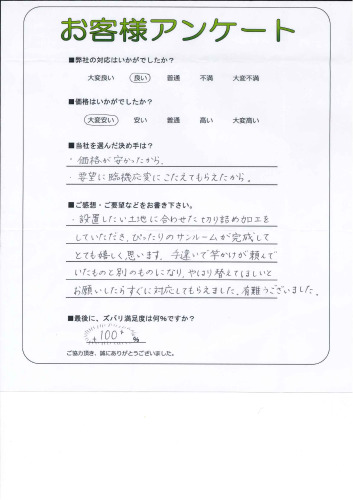 お客様アンケート
■弊社の対応はいかがでしたか?
大変良い 良い 普通 不満 大変不満
■価格はいかがでしたか?
大変安い 安い 普通 高い 大変高い
■当社を選んだ決め手は?
・価格が安かったから、
・要望に臨機応変にこたえてもらえたから。
■ご感想・ご要望などをお書き下さい。
・設置したい土地に合わせた切り詰め加工を
していただき、ぴったりのサンルームが完成して
とても嬉しく思います。手違いで竿かけが頼んで
いたものと別のものになり、やはり替えてほしいと
お願いしたらすぐに対応してもらえました。有難うございました。
■最後に、ズバリ満足度は何%ですか?
100 %
ご協力頂き、誠にありがとうございました。